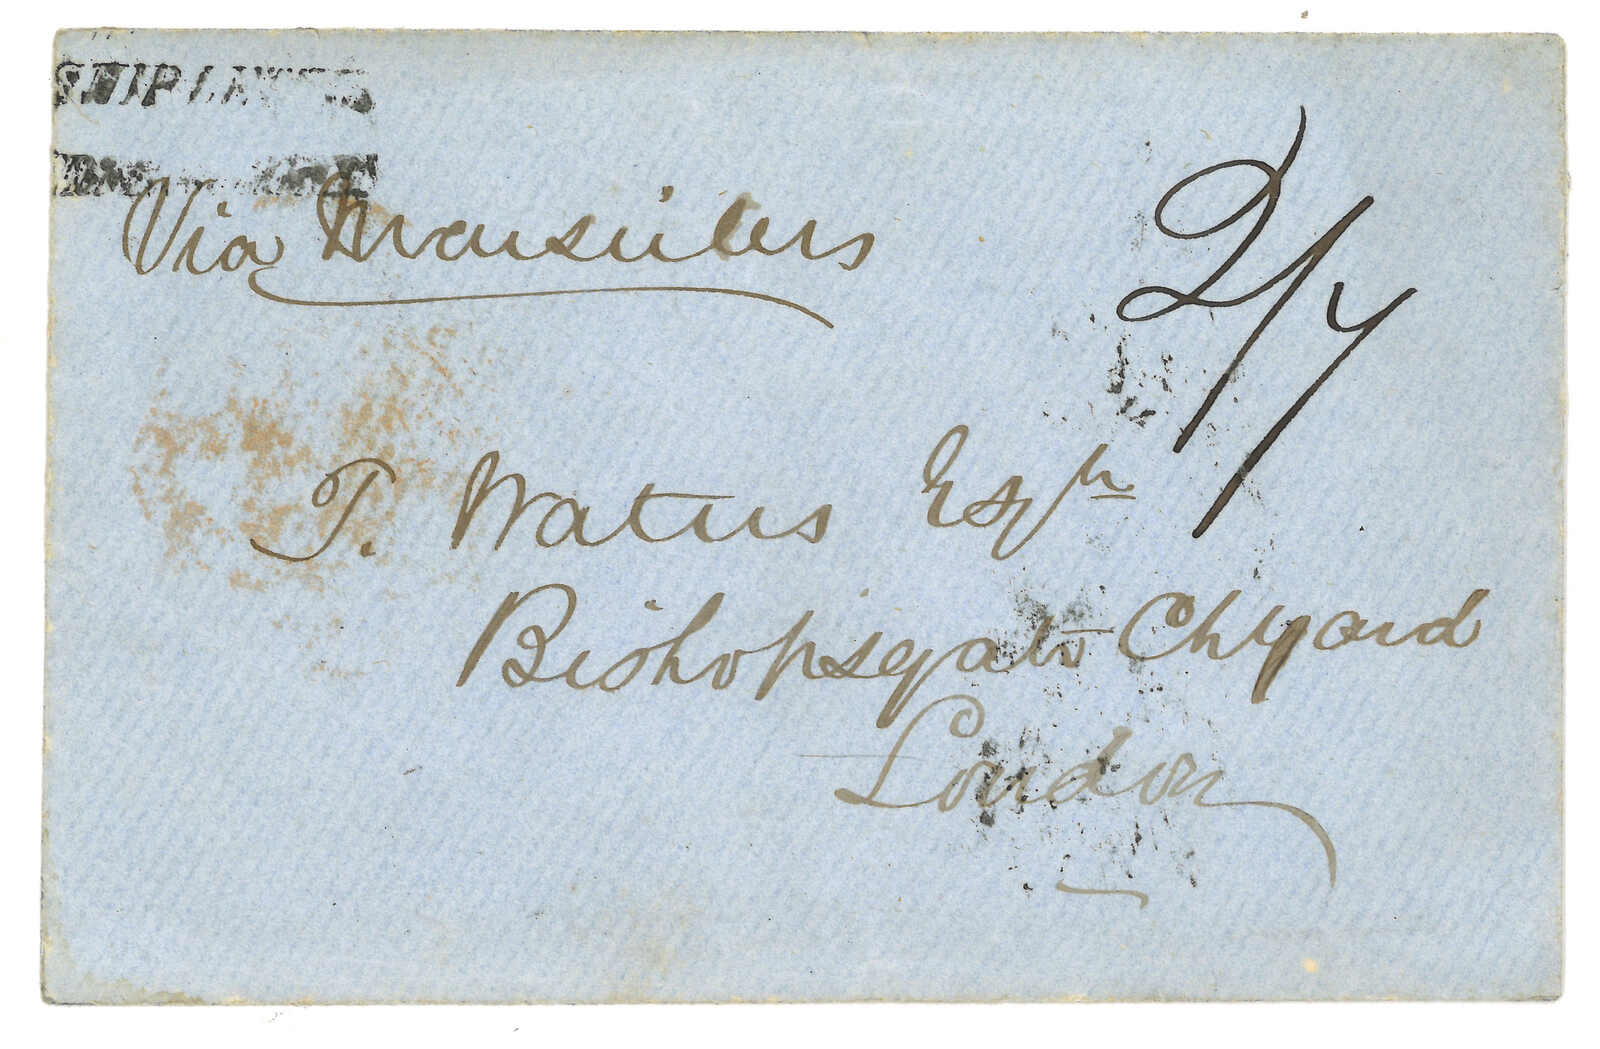 SHIP LETTER
Via Marseilles
2/7
T. Waters Esqr
Bishopsgate Chyard
London